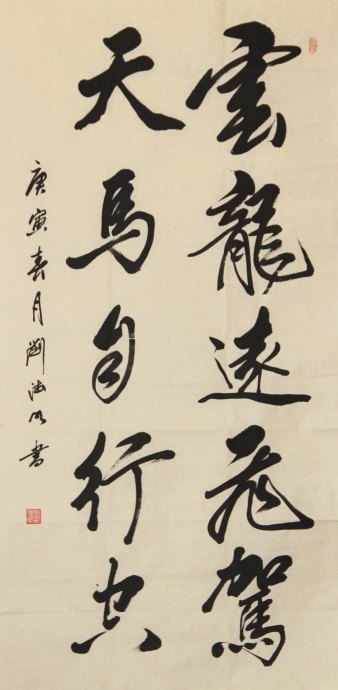 雲龍遠飛駕
天馬自行空
庚寅春月劉海明書